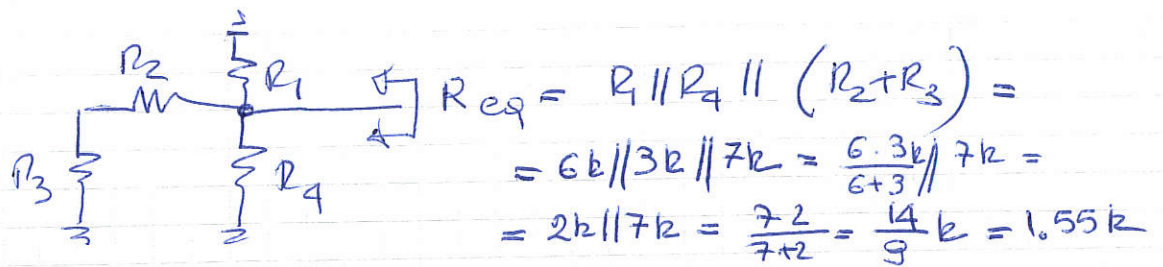 R2
R1
R3
R4
Req = R1 || R4 || (R2+R3) =
= 6k||3k||7k = 6·3k/6+3 || 7k =
= 2k||7k = 7 2/7+2 = 14/9 k = 1.55k